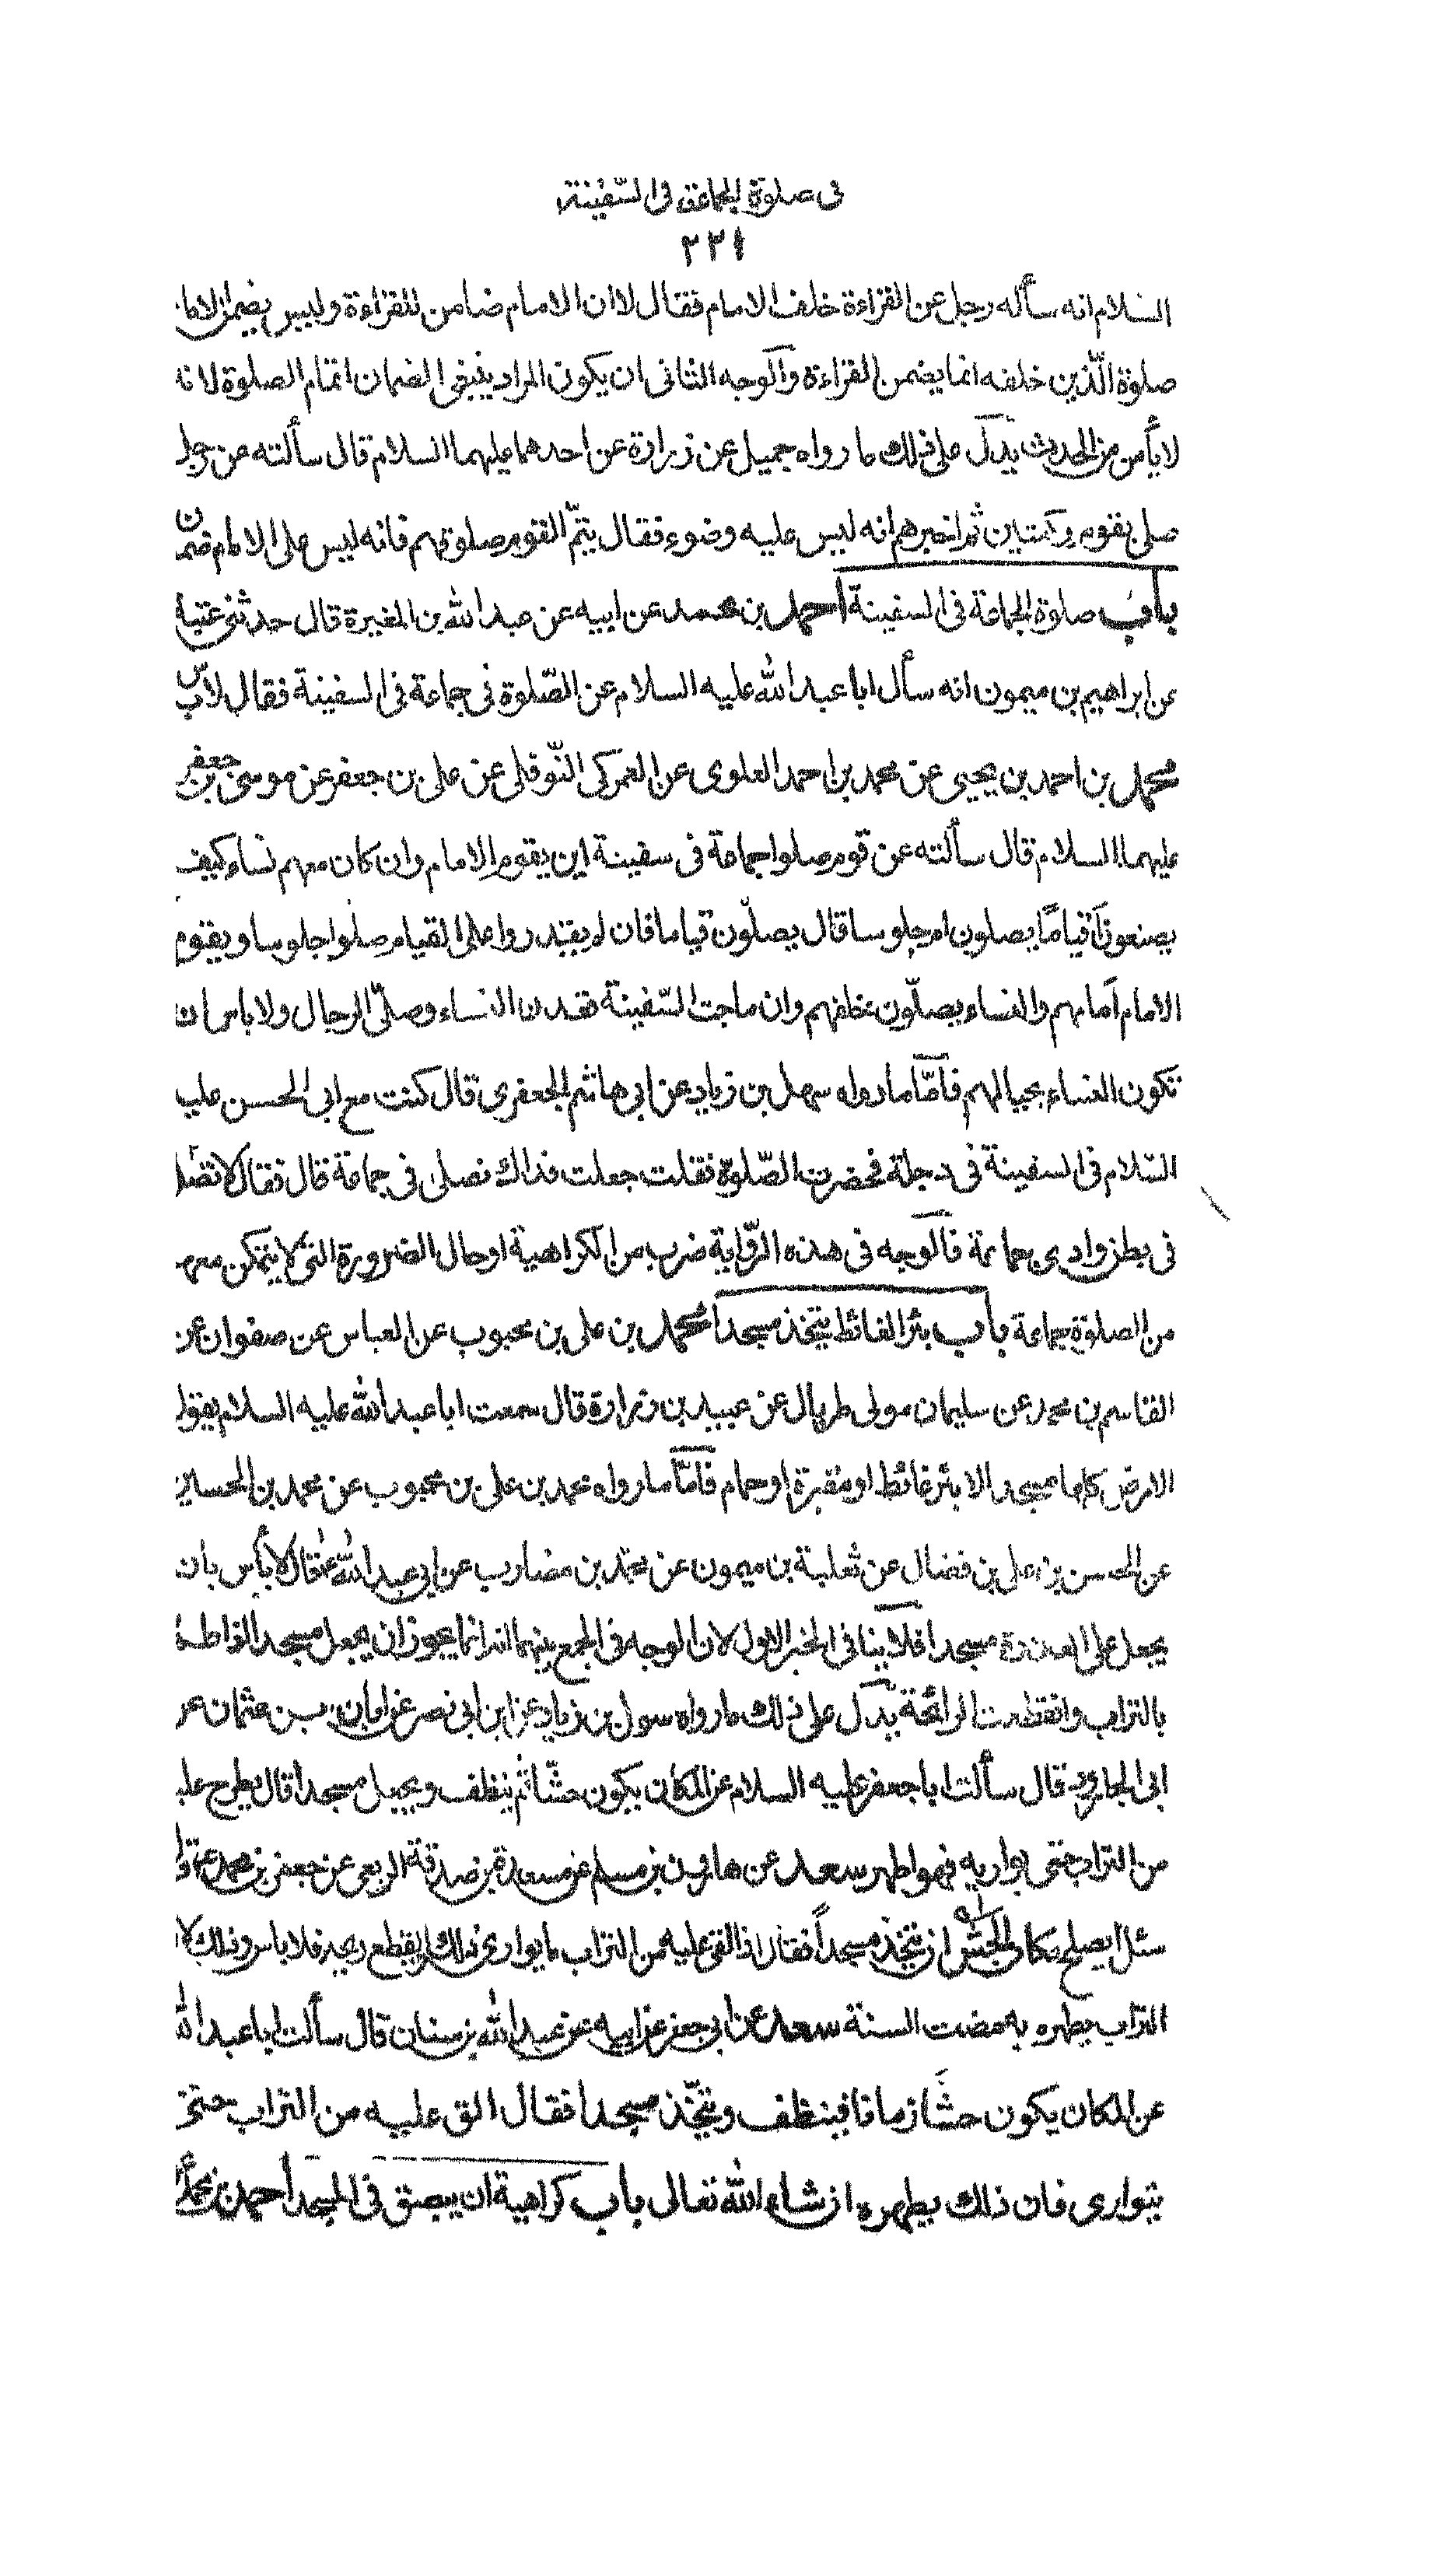 فى صلوة الجماعة فى السّفينة
٢٢١
السلام انه سأله رجل عن القراءة خلف الامام فقال لا ان الامام ضامن للقراءة وليس يضمن الامام
صلوة الّذين خلفه انما يضمن القراءة والوجه الثانى ان يكون المراد ينبغى الضمان اتمام الصلوة لانه
لا يأمن من الحديث يدلّ على ذلك ما رواه جميل عن زرارة عن احدهما عليهما السلام قال سألته عن رجل
صلى بقوم ركعتين ثم اخبرهم انه ليس عليه وضوء فقال يتمّ القوم صلوتهم فانه ليس على الامام ضمان
باب صلوة الجماعة فى السفينة احمد بن محمد عن ابيه عن عبد الله بن المغيرة قال حدثنى عتيبة
عن ابراهيم بن ميمون انه سأل ابا عبد الله عليه السلام عن الصّلوة فى جماعة فى السفينة فقال لا بأس
محمد بن احمد بن يحيى عن محمد بن احمد العلوى عن العمركى النّوفلى عن على بن جعفر عن موسى بن جعفر
عليهما السلام قال سألته عن قوم صلوا جماعة فى سفينة اين يقوم الامام وان كان معهم نساء كيف
يصنعون أقياما يصلون ام جلوسا قال يصلّون قياما فان لم يقتدروا على القيام صلوا جلوسا ويقوم
الامام امامهم والنساء يصلّون خلفهم وان ماجت السّفينة قعدن النساء وصلّى الرجال ولا باس ان
تكون النساء بحيالهم فامّا ما رواه سهل بن زياد عن ابى هاشم الجعفرى قال كنت مع ابى الحسن عليه
السّلام فى السفينة فى دجلة فحضرت الصّلوة فقلت جعلت فداك نصلى فى جماعة قال فقال لا تصل
فى بطن وادى جماعة فالوجه فى هذه الرّواية ضرب من الكراهية او حال الضرورة التى لا يتمكن معها
من الصلوة جماعة باب بئر الغائط يتخذ مسجدا محمد بن على بن محبوب عن العباس عن صفوان عن
القاسم بن محمد عن سليمان مولى طربال عن عبيد بن زرارة قال سمعت ابا عبد الله عليه السلام يقول
الارض كلها مسجد الا بئر غائط او مقبرة او حمام فامّا ما رواه محمد بن على بن محبوب عن محمد بن الحسين
عن الحسن بن على بن فضال عن ثعلبة بن ميمون عن محمّد بن مضارب عن ابى عبد الله ع قال لا بأس بان
يجعل على العذرة مسجدا فلا ينافى الخبر الاول لان الوجه فى الجمع بينهما انه انما يجوز ان يجعل مسجدا اذا طمه
بالتراب وانقطعت الرائحة يدل على ذلك ما رواه سهل بن زياد عن ابن ابى نصر عن ابان بن عثمان عن
ابى الجارود قال سألت ابا جعفر عليه السلام عن المكان يكون حشّا ثم ينظف ويجعل مسجدا قال يطرح عليه
من التراب حتى يواريه فهو اطهر سعد عن هارون بن مسلم عن مسعدة بن صدقة الربعى عن جعفر بن محمد ع قال
سئل ايصلح مكان الحش ان يتخذ مسجداً فقال اذا القى عليه من التراب ما يوارى ذلك ويقطع ريحه فلا باس وذلك لان
التراب يطهره به مضت السنة سعد عن ابى جعفر عن ابيه عن عبد الله بن سنان قال سألت ابا عبد الله
عن المكان يكون حشّا زمانا فينظف ويتّخذ مسجدا فقال الق عليه من التراب حتى
يتوارى فان ذلك يطهره ان شاء الله تعالى باب كراهية ان يبصق فى المسجد احمد بن محمد